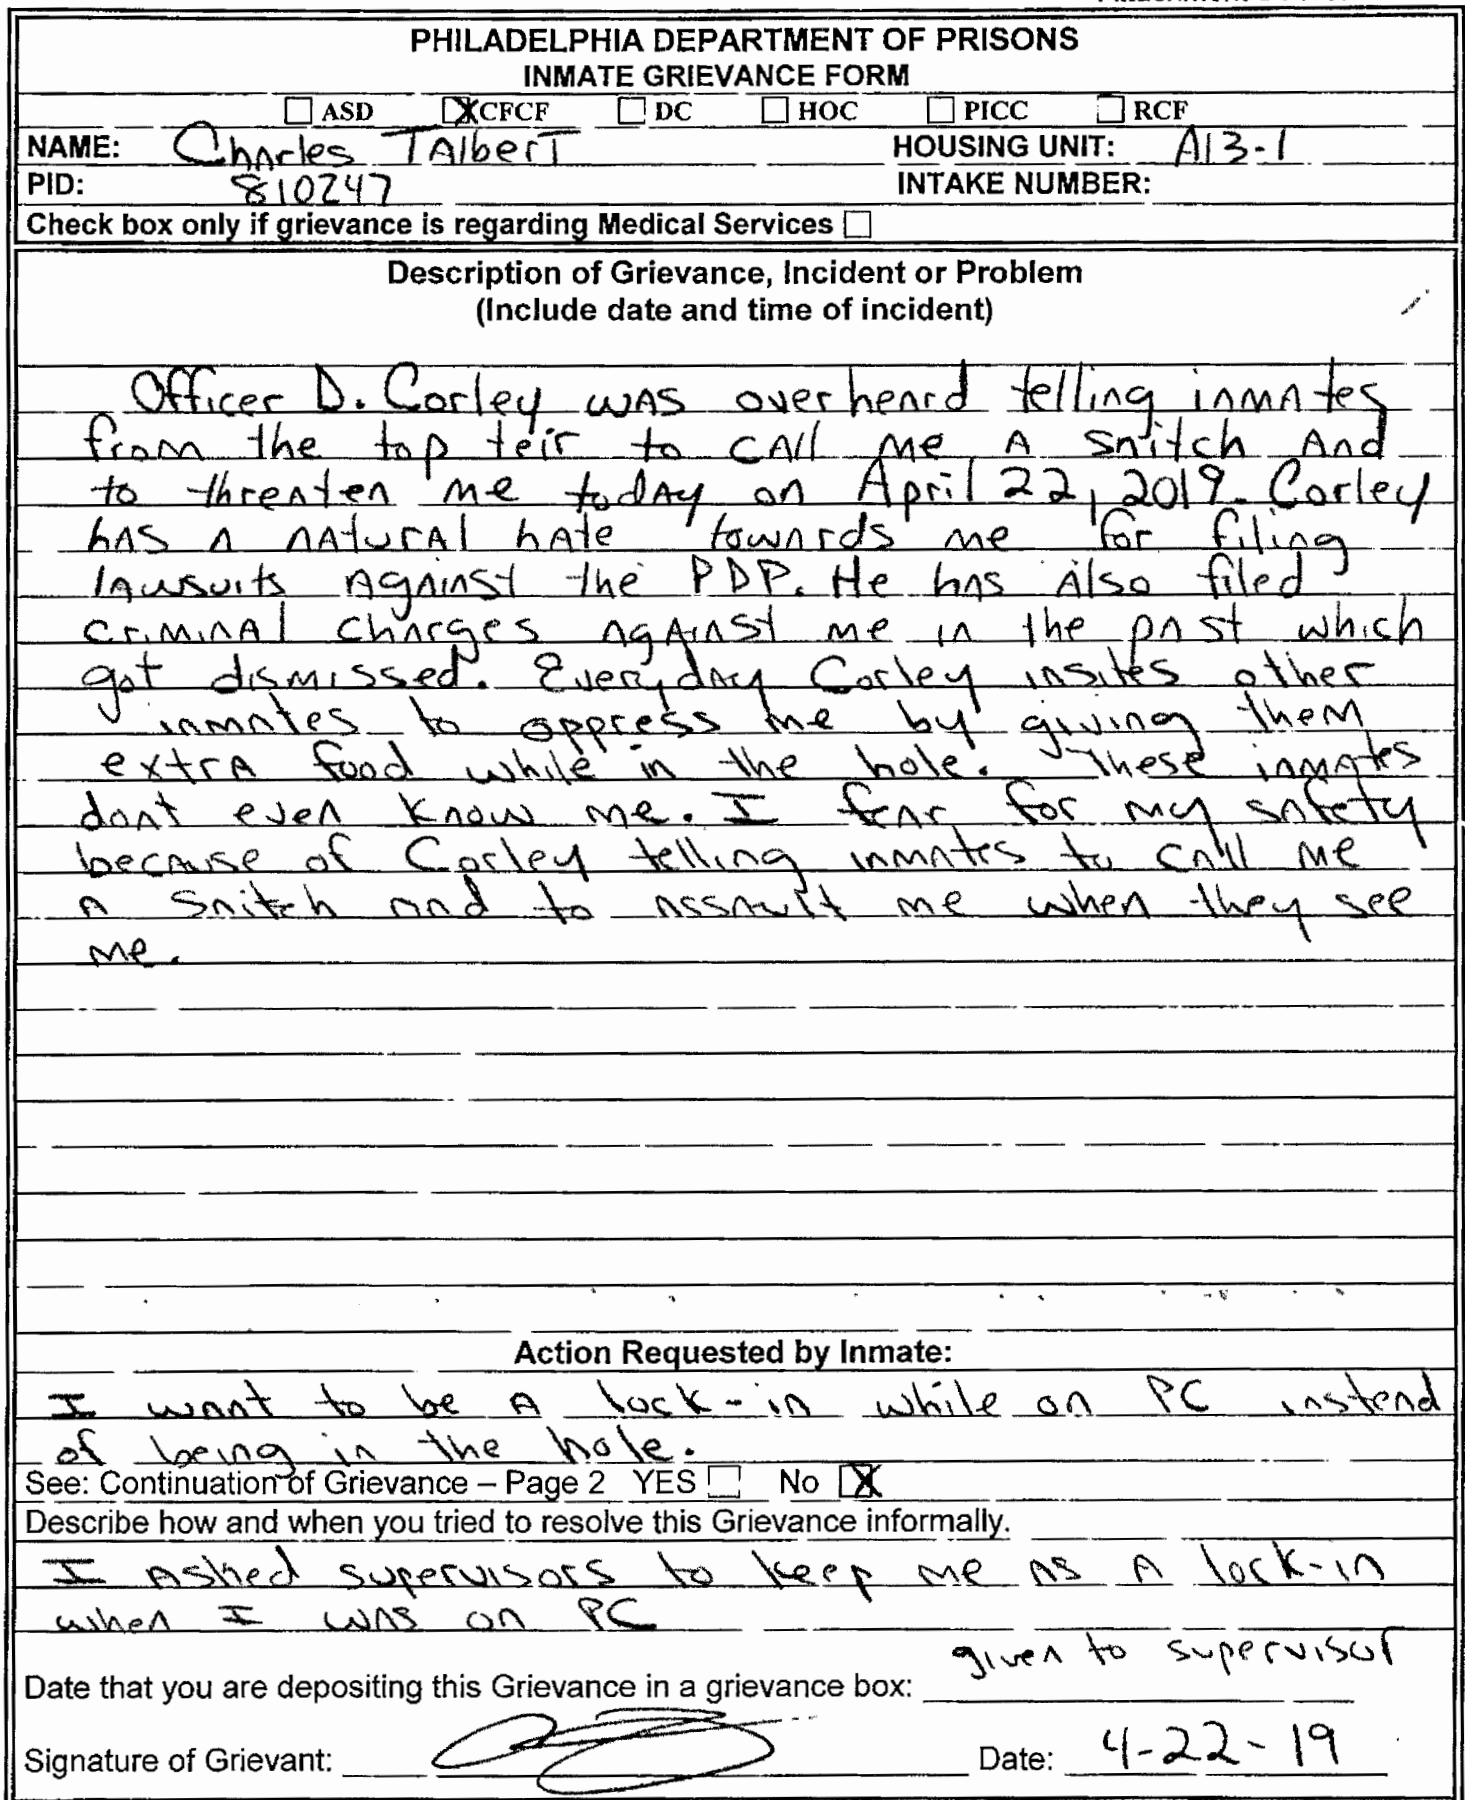 PHILADELPHIA DEPARTMENT OF PRISONS
INMATE GRIEVANCE FORM
☐ ASD ☒ CFCF ☐ DC ☐ HOC ☐ PICC ☐ RCF
NAME: Charles TAlberT HOUSING UNIT: A13-1
PID: 810247 INTAKE NUMBER:
Check box only if grievance is regarding Medical Services ☐
Description of Grievance, Incident or Problem
(Include date and time of incident)
Officer D. Corley was overheard telling inmates
from the top teir to call me a snitch and
to threaten me today on April 22, 2019. Corley
has a natural hate towards me for filing
lawsuits against the PDP. He has also filed
criminal charges against me in the past which
got dismissed. Everyday Corley insites other
inmates to oppress me by giving them
extra food while in the hole. These inmates
dont even know me. I fear for my safety
because of Corley telling inmates to call me
a snitch and to assault me when they see
me.
Action Requested by Inmate:
I want to be a lock-in while on PC instead
of being in the hole.
See: Continuation of Grievance – Page 2 YES ☐ No ☒
Describe how and when you tried to resolve this Grievance informally.
I asked supervisors to keep me as a lock-in
when I was on PC
Date that you are depositing this Grievance in a grievance box: given to supervisor
Signature of Grievant: Date: 4-22-19